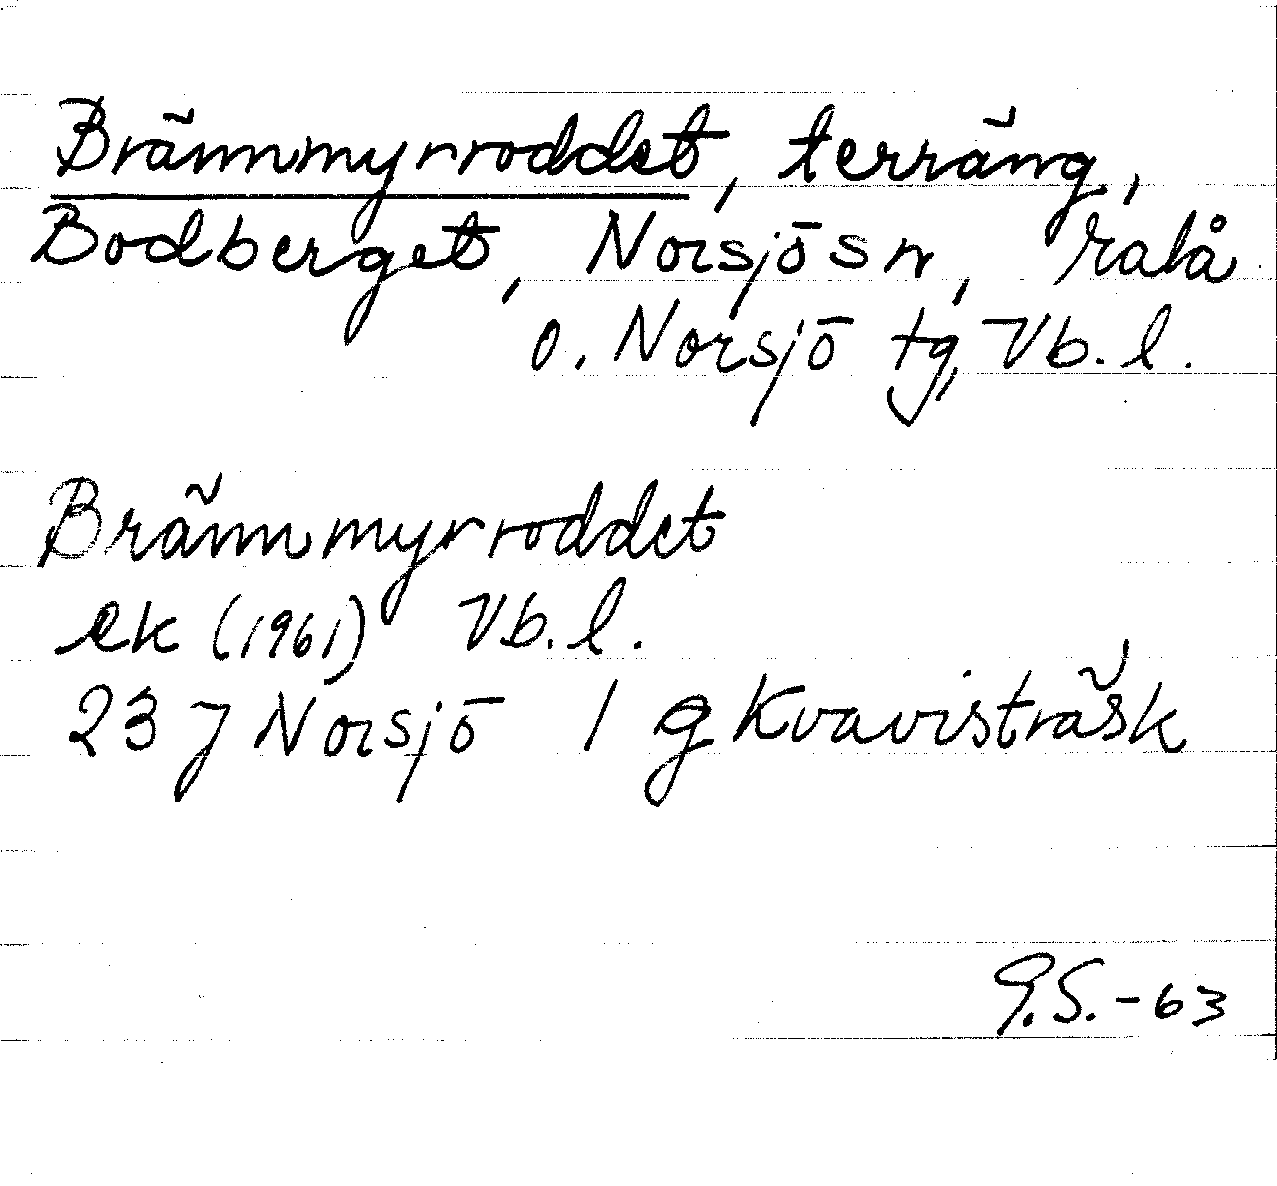 Brännmyrroddet, terräng,
Bodberget, Norsjö sn,
o. Norsjö tg, Vb. l.
Brännmyrroddet
ek (1961) Vb. l.
23 J Norsjö 1 g Kvavisträsk
G.S. -63